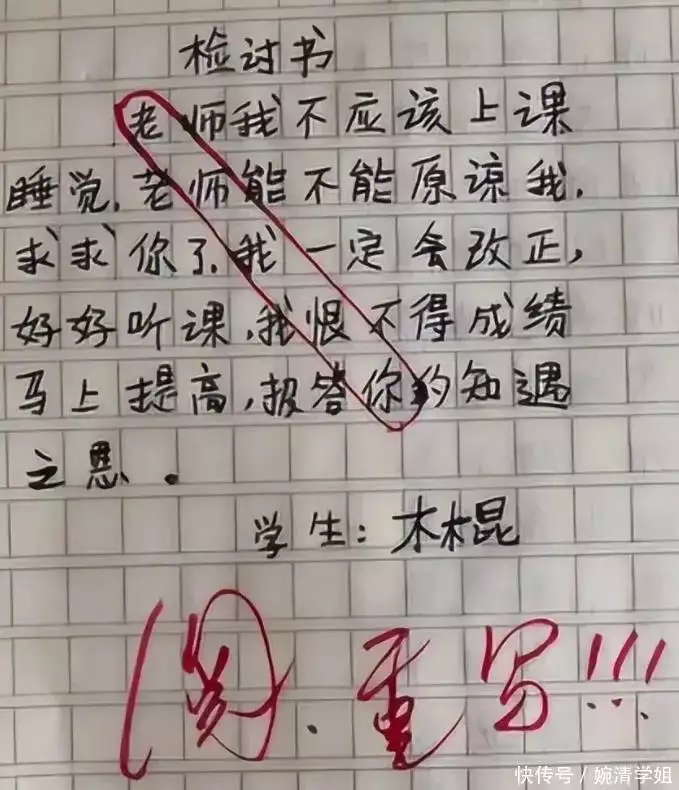 检讨书
老师我不应该上课
睡觉,老师能不能原谅我.
求求你了.我一定会改正,
好好听课,我恨不得成绩
马上提高,报答你的知遇
之恩.
学生:木棍
阅.重写!!!
快传号/婉清学姐